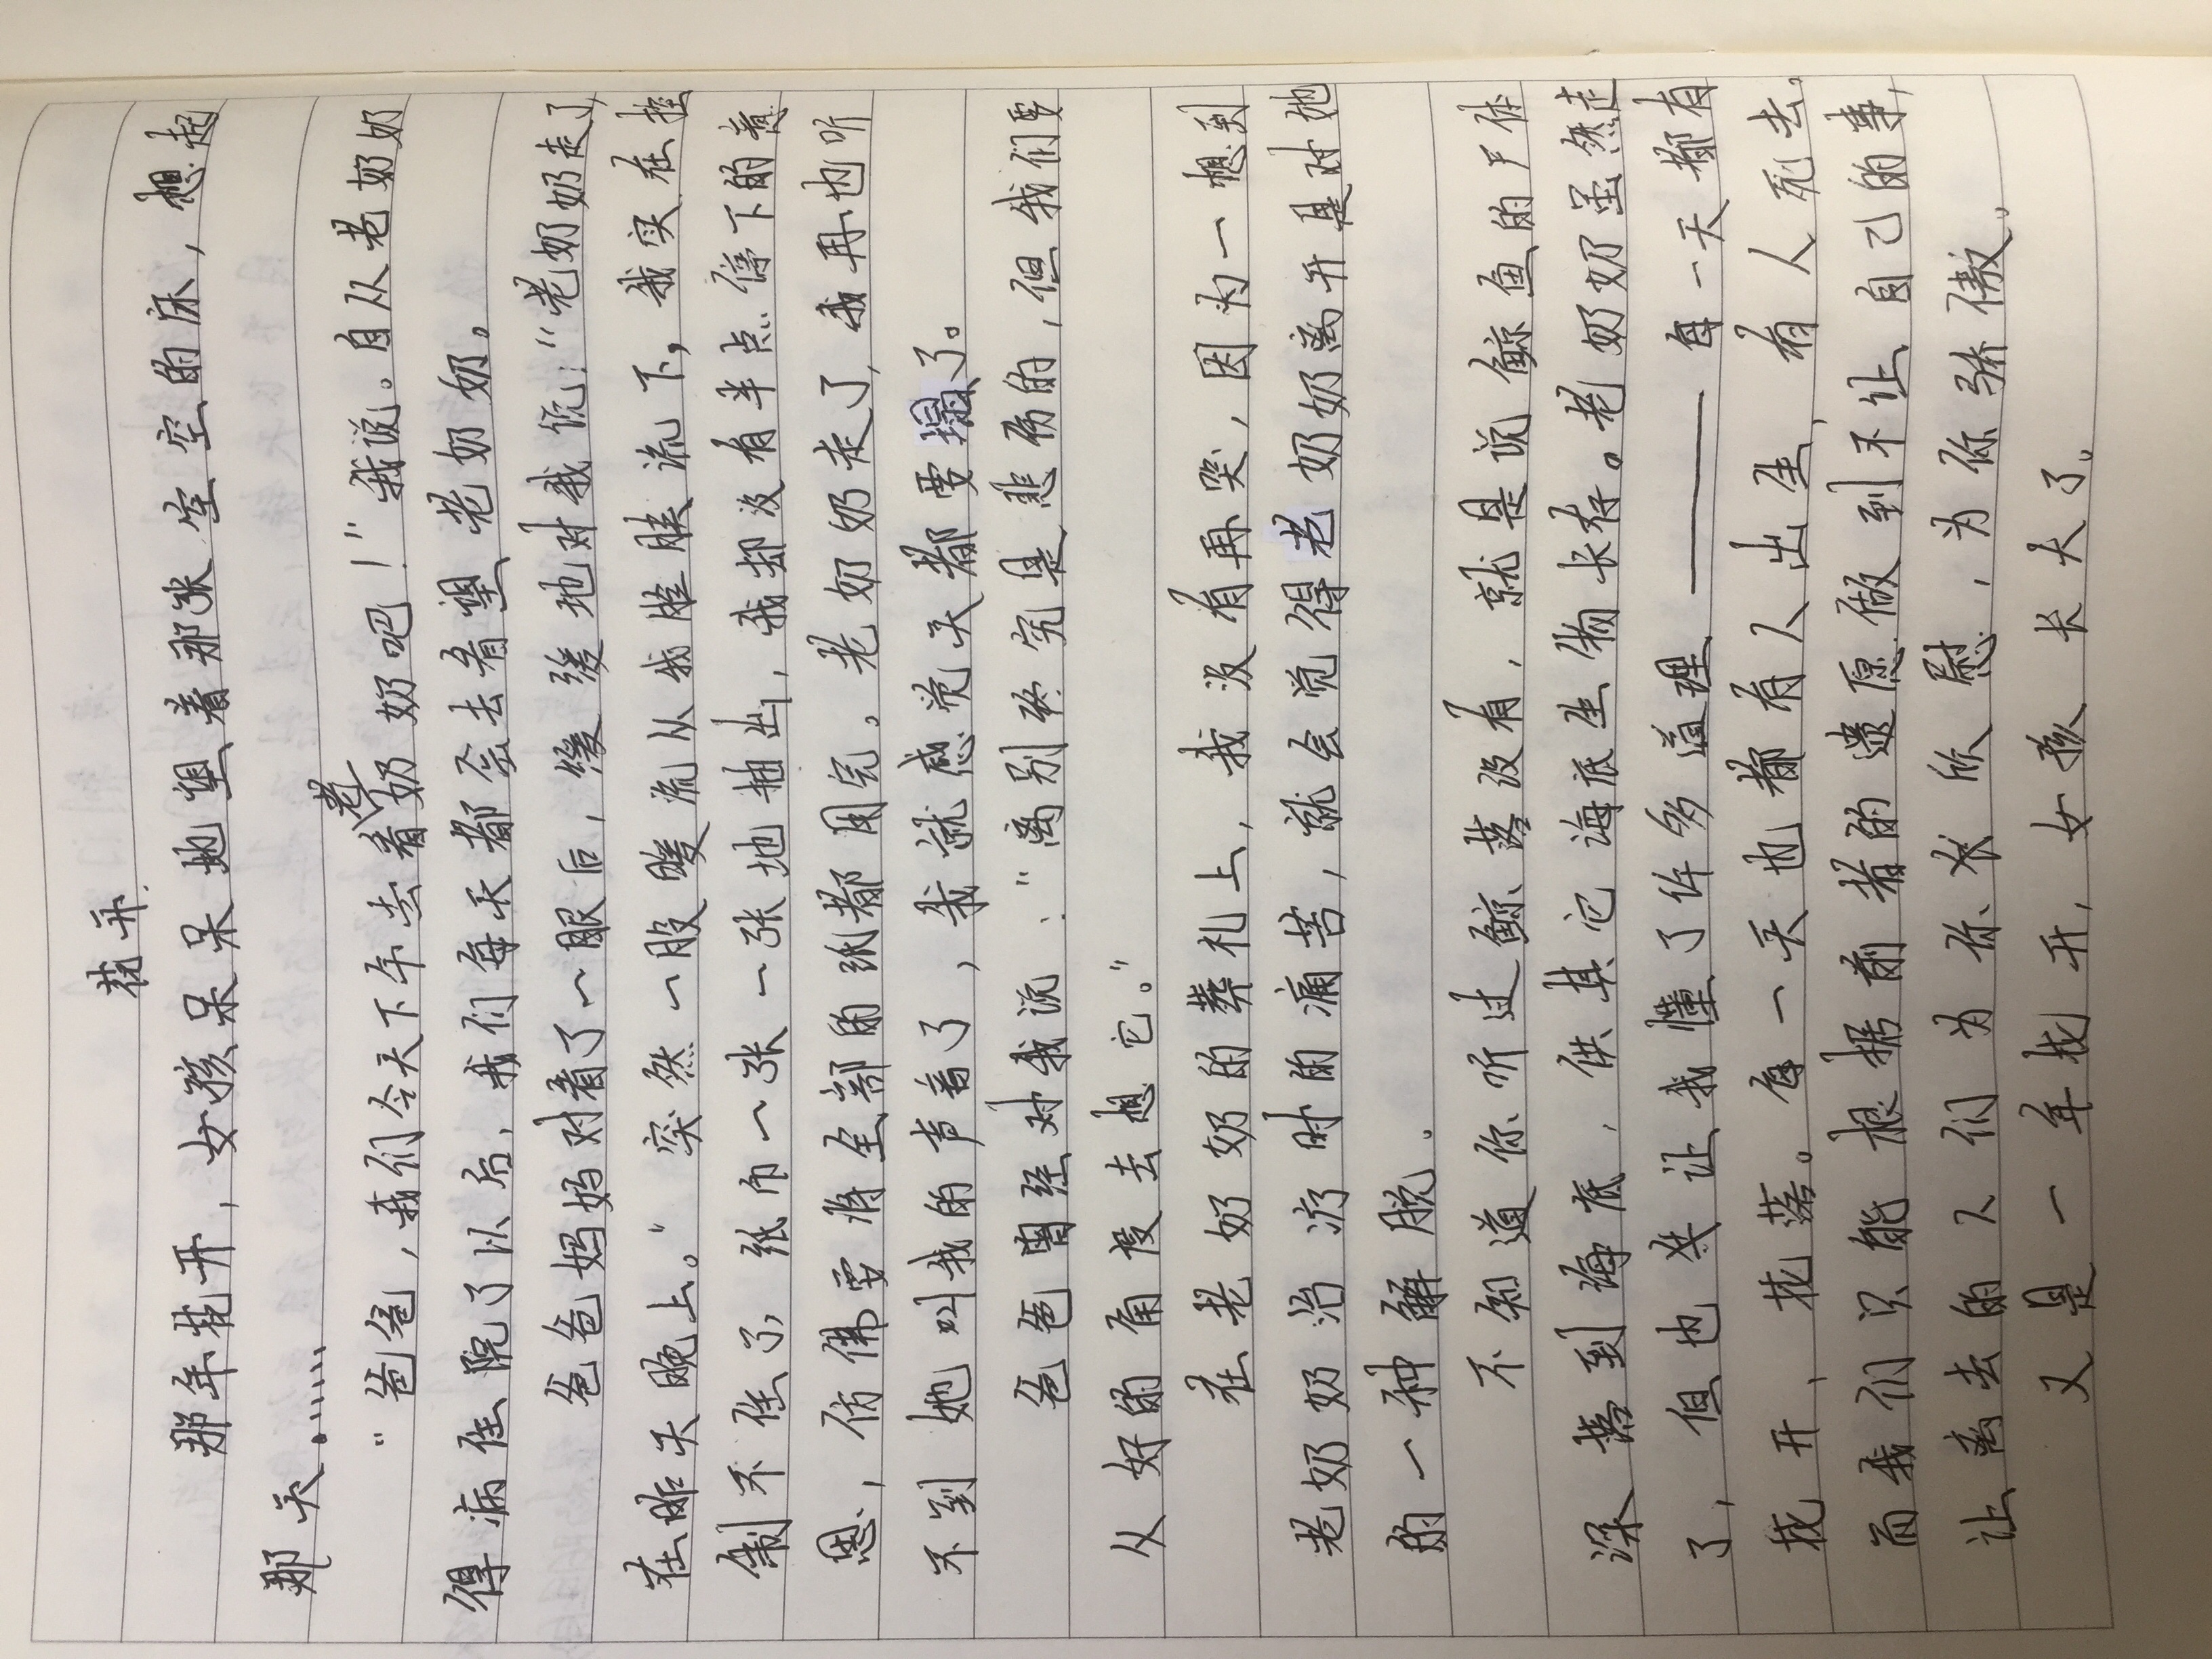 花开
那年花开，女孩呆呆地望着那张空空的床，想起
那天……
“爸爸，我们今天下午去看老奶奶吧！”我说。自从老奶奶
得病住院了以后，我们每天都会去看望老奶奶。
爸爸妈妈对看了一眼后，缓缓地对我说：“老奶奶走了，
在昨天晚上。”突然一股暖流从我脸颊流下，我实在控
制不住了，纸巾一张一张地抽出，我却没有半点停下的意
思，仿佛要将全部的纸都用完。老奶奶走了，我再也听
不到她叫我的声音了，我就感觉天都要塌了。
爸爸曾经对我说：“离别终究是悲伤的，但我们要
从好的角度去想它。”
在老奶奶的葬礼上，我没有再哭，因为一想到
老奶奶治疗时的痛苦，就会觉得老奶奶离开是对她
的一种解脱。
不知道你听过鲸落没有，就是说鲸鱼的尸体
深落到海底，供其它海底生物长存。老奶奶虽然走
了，但也失让我懂了许多道理——每一天都有
花开、花落。每一天也都有人出生，有人死去。
而我们只能根据前者的遗愿做到不让自己的事，
让离去的人们为你欣慰，为你骄傲。
又是一年花开，女孩长大了。